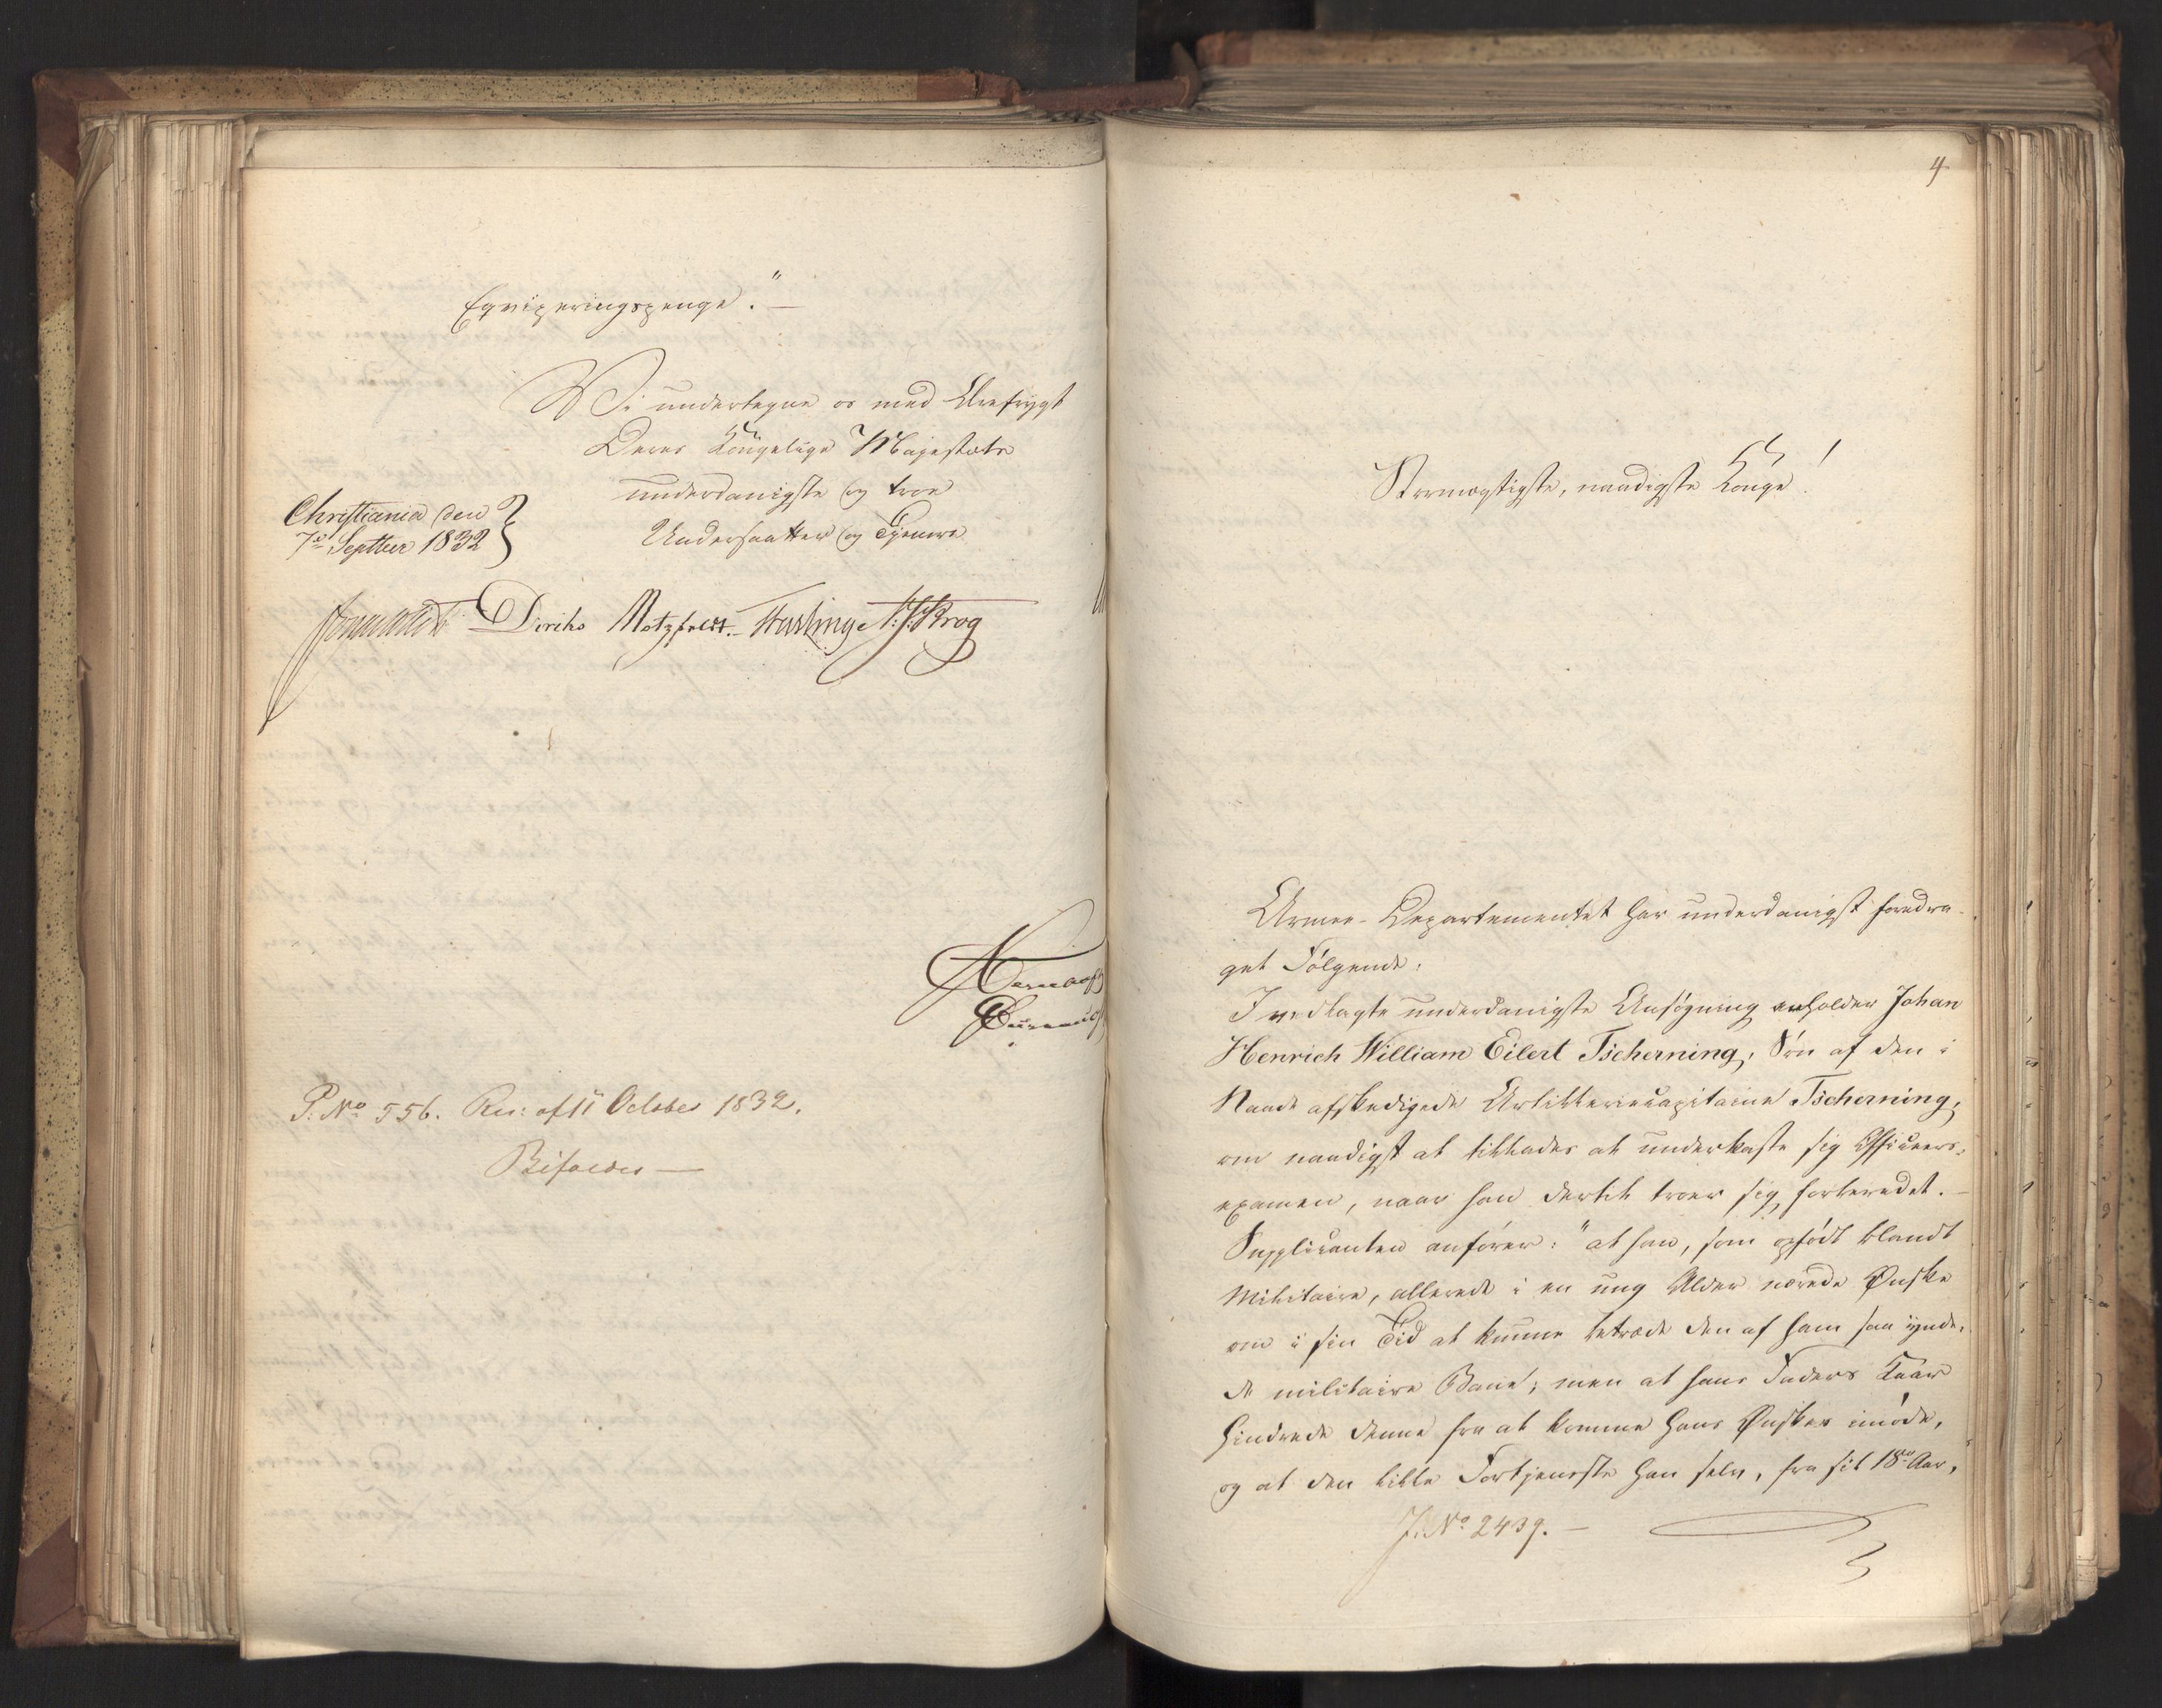 Eqviperingspenge." —
Vi undertegne os med Ærefrygt
Deres Kongelige Majestæts
underdanigste og troe
Undersaatter og Tjenere
Christiania den
7de Septber 1832
Diriks Motzfeldt. N: J: Krog
P: No 556. Res: af 11 October 1832.
Bifaldes —
4
Stormægtigste, naadigste Konge!
Armee-Departementet har underdanigst foredra-
get Følgende:
I vedlagte underdanigste Ansøgning anholder Johan
Henrich William Eilert Tscherning, Søn af den i
Naade afskedigede Artilleriecapitaine Tscherning,
om naadigst at tillades at underkaste sig Officeers-
examen, naar han dertil troer sig forberedet. —
Supplicanten anfører: "at han, som opfødt blandt
Militaire, allerede i en ung Alder nærede Ønske
om i sin Tid at kunne betræde den af ham saa ynde-
de militaire Bane; men at hans Faders Kaar
hindrede denne fra at komme hans Ønsker imøde,
og at den lille Fortjeneste han selv, fra sit 18de Aar,
J. No 2439. —